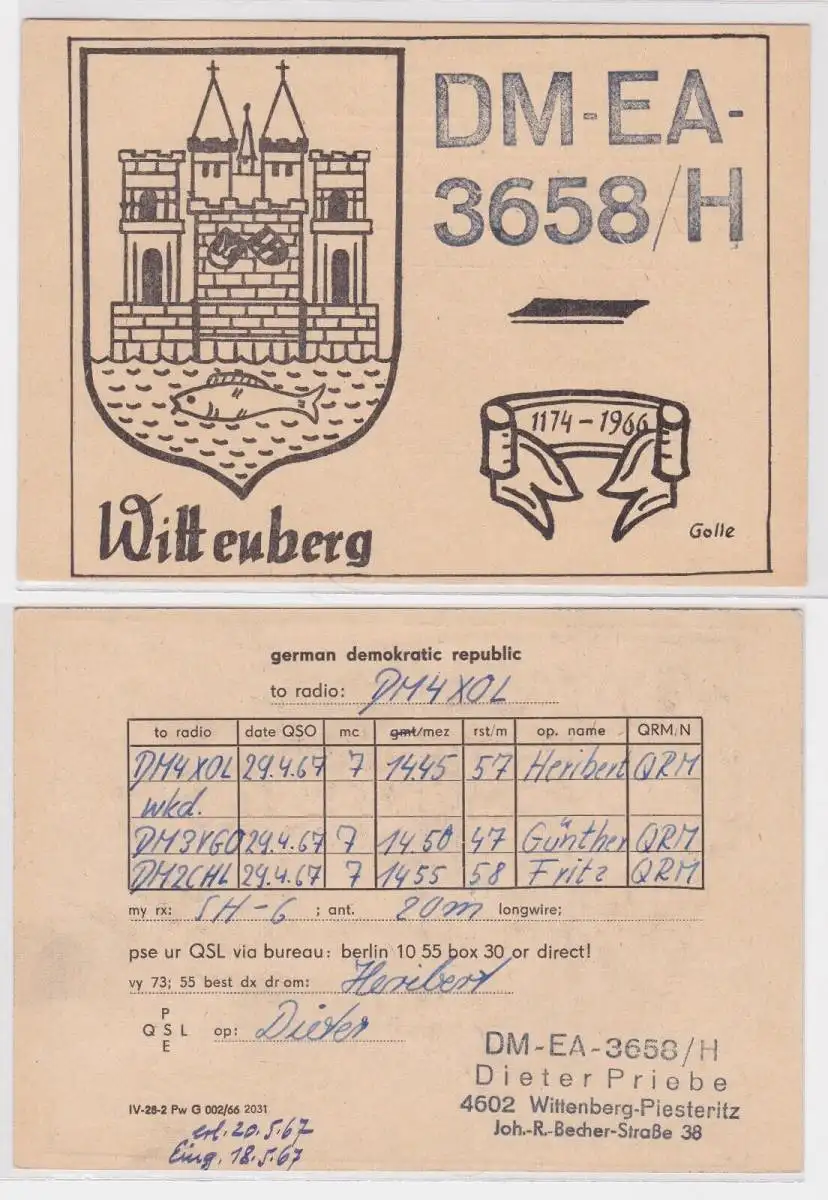 DM-EA-
3658/H
1174-1966
Golle
Wittenberg
german demokratic republic
to radio: DM4XOL
to radio date QSO mc gmt/mez rst/m op. name QRM/N
DM4XOL 29.4.67 7 1445 57 Heribert QRM
wkd.
DM3VGO 29.4.67 7 14.50 47 Günther QRM
DM2CHL 29.4.67 7 1455 58 Fritz QRM
my rx: SH-6 ; ant. 20m longwire;
pse ur QSL via bureau: berlin 10 55 box 30 or direct!
vy 73; 55 best dx dr om: Heribert
P
Q S L op: Dieter
E
DM-EA-3658/H
Dieter Priebe
4602 Wittenberg-Piesteritz
Joh.-R.-Becher-Straße 38
IV-28-2 Pw G 002/66 2031
erl. 20.5.67
Eing. 18.5.67